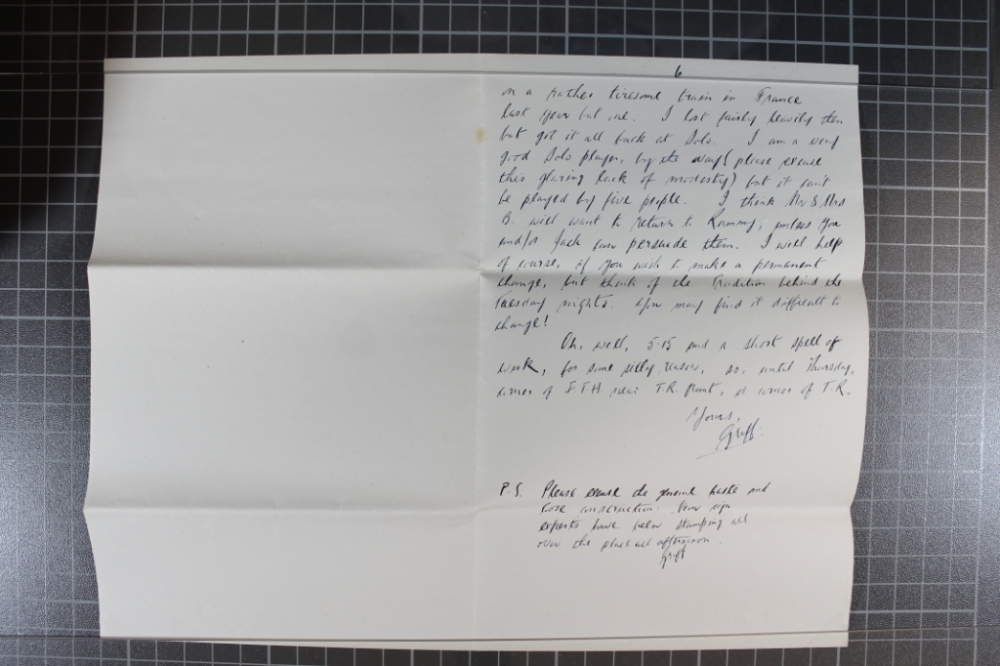 6
on a rather tiresome train in France
last year but one. I lost fairly heavily then
but got it all back at Solo. I am a very
good Solo player, by the way (please excuse
this glaring lack of modesty) but it can't
be played by five people. I think Mr & Mrs
B. will want to return to Rummy, unless you
and/or Jack can persuade them. I will help
of course, if you wish to make a permanent
change, but think of the Tradition behind the
Tuesday nights. You may find it difficult to
change!
Oh, well, 5.15 and a short spell of
work, for some silly reason, so, until Thursday,
corner of near T.R. front, or corner of T.R.
Yours,
Griff.
P.S. Please excuse the general haste and
loose construction.
experts have been stamping all
over the place all afternoon.
Griff